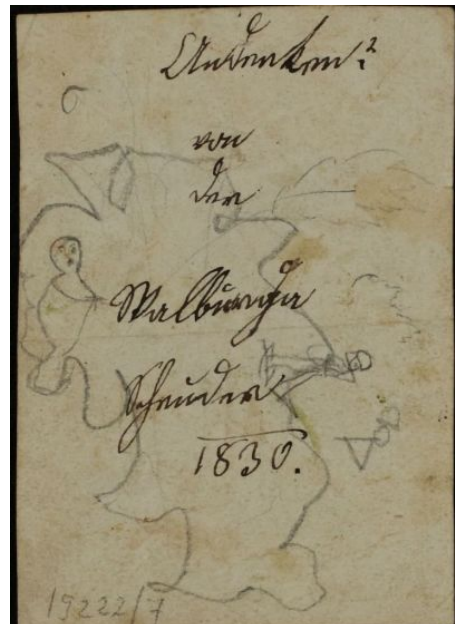 Andenken.
von
der
Walburga
Schnuder
1830.
19222/7